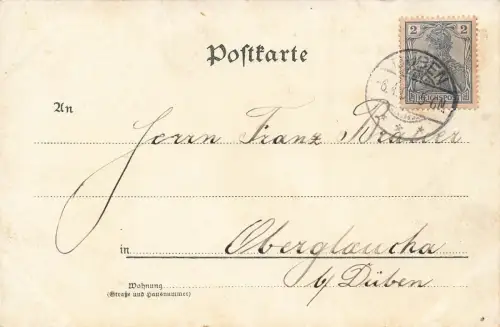 2 2
REICHSPOST
DÜBEN
Postkarte
An
Herrn Franz
in Oberglaucha
b/ Düben
Wohnung
(Straße und Hausnummer)